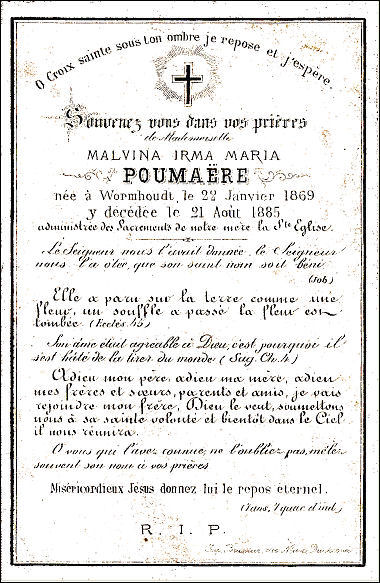 O Croix sainte sous ton ombre je repose et j'espère.
Souvenez vous dans vos prières
de Mademoiselle
MALVINA IRMA MARIA
POUMAËRE
née à Wormhoudt, le 22 Janvier 1869
y décédée le 21 Août 1885
administrée des Sacrements de notre mère la Ste Eglise.
Le Seigneur nous l'avait donnée, le Seigneur
nous l'a otée, que son saint nom soit béni
(Job)
Elle a paru sur la terre comme une
fleur, un souffle a passé la fleur est
tombée (Ecclés.
Son âme était agréable à Dieu, c'est pourquoi il
s'est hâté de la tirer du monde (Sag. Ch. 4)
Adieu mon père, adieu ma mère, adieu
mes frères et sœurs, parents et amis, je vais
rejoindre mon frère, Dieu le veut, soumettons
nous à sa sainte volonté et bientôt dans le Ciel
il nous réunira.
O vous qui l'avez connue, ne l'oubliez pas, mêlez
souvent son nom à vos prières
Miséricordieux Jésus donnez lui le repos éternel.
(7 ans, 7 quar. d'ind.)
R. I. P.